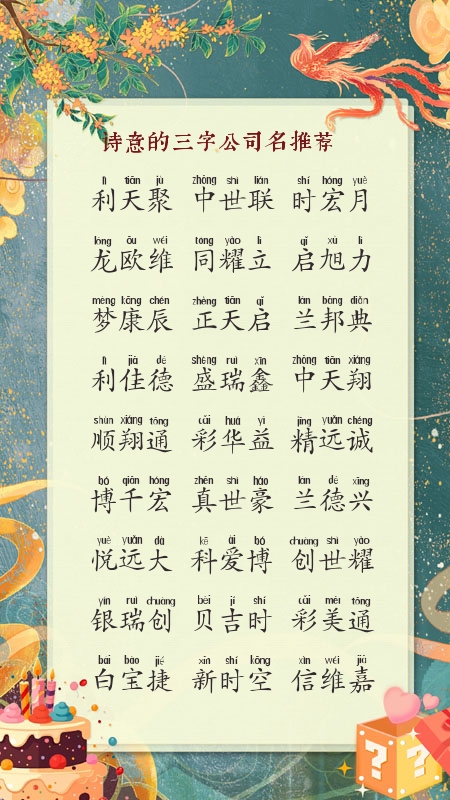 诗意的三字公司名推荐
lì tiān jù zhōng shì lián shí hóng yuè
利天聚 中世联 时宏月
lóng ōu wéi tóng yào lì qǐ xù lì
龙欧维 同耀立 启旭力
mèng kāng chén zhèng tiān qǐ lán bāng diǎn
梦康辰 正天启 兰邦典
lì jiā dé shèng ruì xīn zhōng tiān xiáng
利佳德 盛瑞鑫 中天翔
shùn xiáng tōng cǎi huá yì jīng yuǎn chéng
顺翔通 彩华益 精远诚
bó qiān hóng zhēn shì háo lán dé xīng
博千宏 真世豪 兰德兴
yuè yuǎn dà kē ài bó chuàng shì yào
悦远大 科爱博 创世耀
yín ruì chuàng bèi jí shí cǎi měi tōng
银瑞创 贝吉时 彩美通
bái bǎo jié xīn shí kōng xìn wéi jiā
白宝捷 新时空 信维嘉
? ?